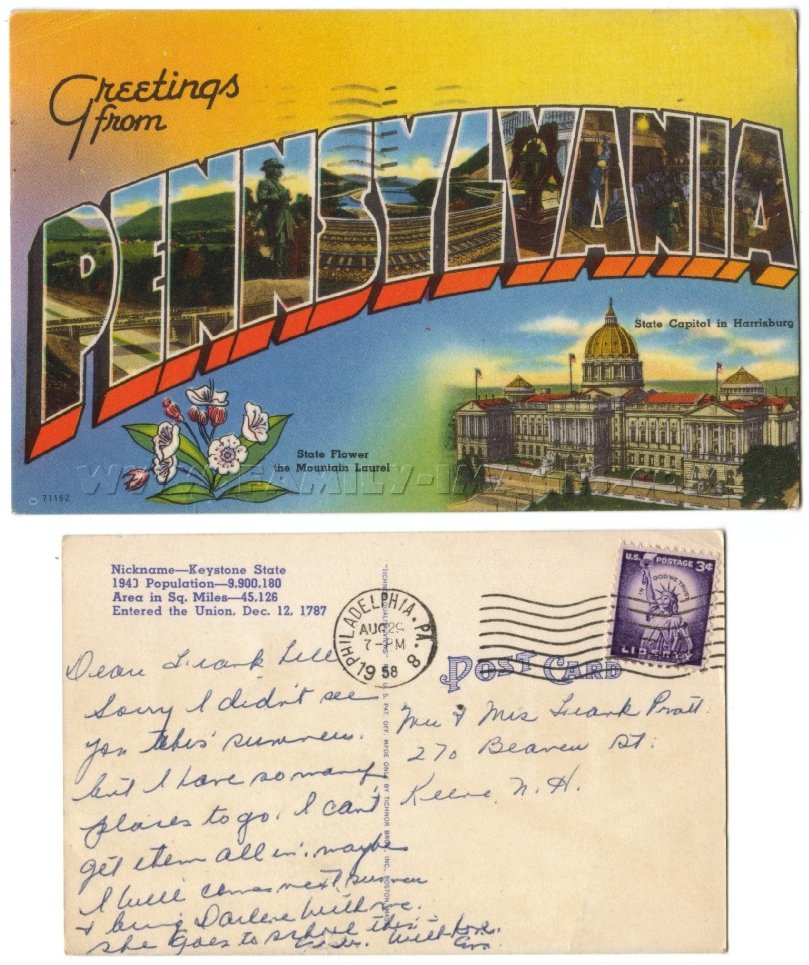 Greetings
from
PENNSYLVANIA
State Capital in Harrisburg
State Flower
the Mountain Laurel
C 71162
Nickname—Keystone State
1940 Population—9,900,180
Area in Sq. Miles—45,126
Entered the Union, Dec. 12, 1787
PHILADELPHIA, PA. 8
AUG 29
7-PM
1958
U.S. POSTAGE 3¢
IN GOD WE TRUST
LIBERTY
POST CARD
Dear Frank
Sorry I didn't see
you this summer.
but I have so many
places to go. I can't
get them all in, maybe
I will come next summer
& bring Darlene with me.
she goes to school this
With Love.
Mr & Mrs Frank Pratt.
270 Beaver St.
Keene, N. H.